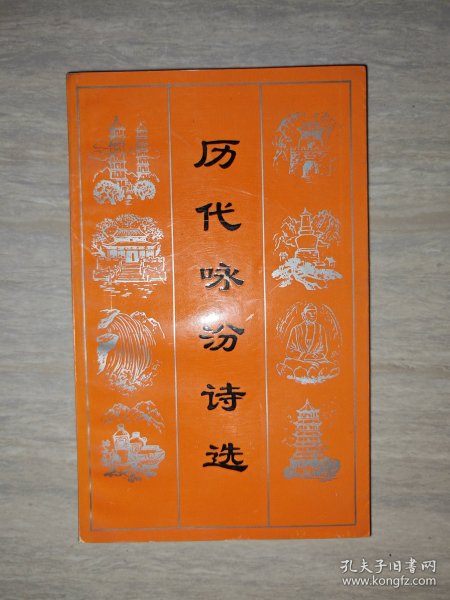 历代咏汾诗选
孔夫子旧书网
www.kongfz.com